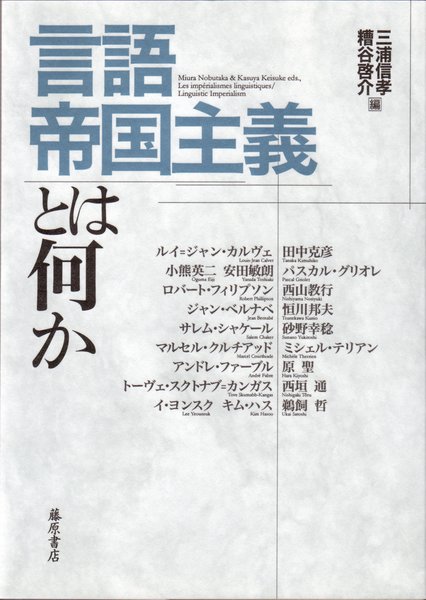 三浦信孝
糟谷啓介 編
言語
Miura Nobutaka & Kasuya Keisuke eds.,
Les impérialismes linguistiques/
Linguistic Imperialism
帝国主義
とは
何か
ルイ=ジャン・カルヴェ 田中克彦
Louis-Jean Calvet Tanaka Katsuhiko
小熊英二 安田敏朗 パスカル・グリオレ
Oguma Eiji Yasuda Toshiaki Pascal Griolet
ロバート・フィリプソン 西山教行
Robert Phillipson Nishiyama Noriyuki
ジャン・ベルナベ 恒川邦夫
Jean Bernabé Tsunekawa Kunio
サレム・シャケール 砂野幸稔
Salem Chaker Sunano Yukitoshi
マルセル・クルチアッド ミシェル・テリアン
Marcel Courthiade Michèle Therrien
アンドレ・ファーブル 原 聖
André Fabre Hara Kiyoshi
トーヴェ・スクトナブ=カンガス 西垣 通
Tove Skutnabb-Kangas Nishigaki Tōru
イ・ヨンスク キム・ハス 鵜飼 哲
Lee Yeounsuk Kim Hasoo Ukai Satoshi
藤原書店